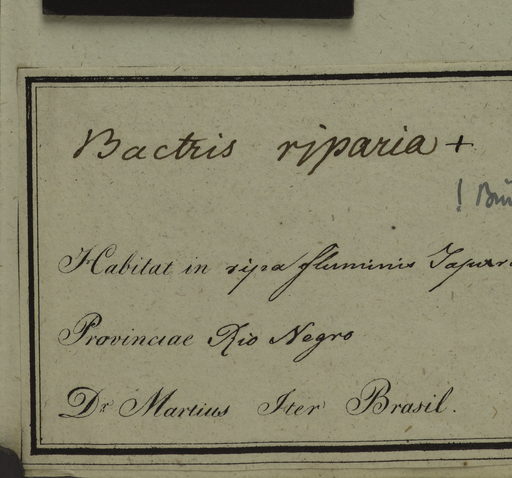 Bactris riparia +
!
Habitat in ripa fluminis
Provinciae Rio Negro
Dr Martius Iter Brasil.